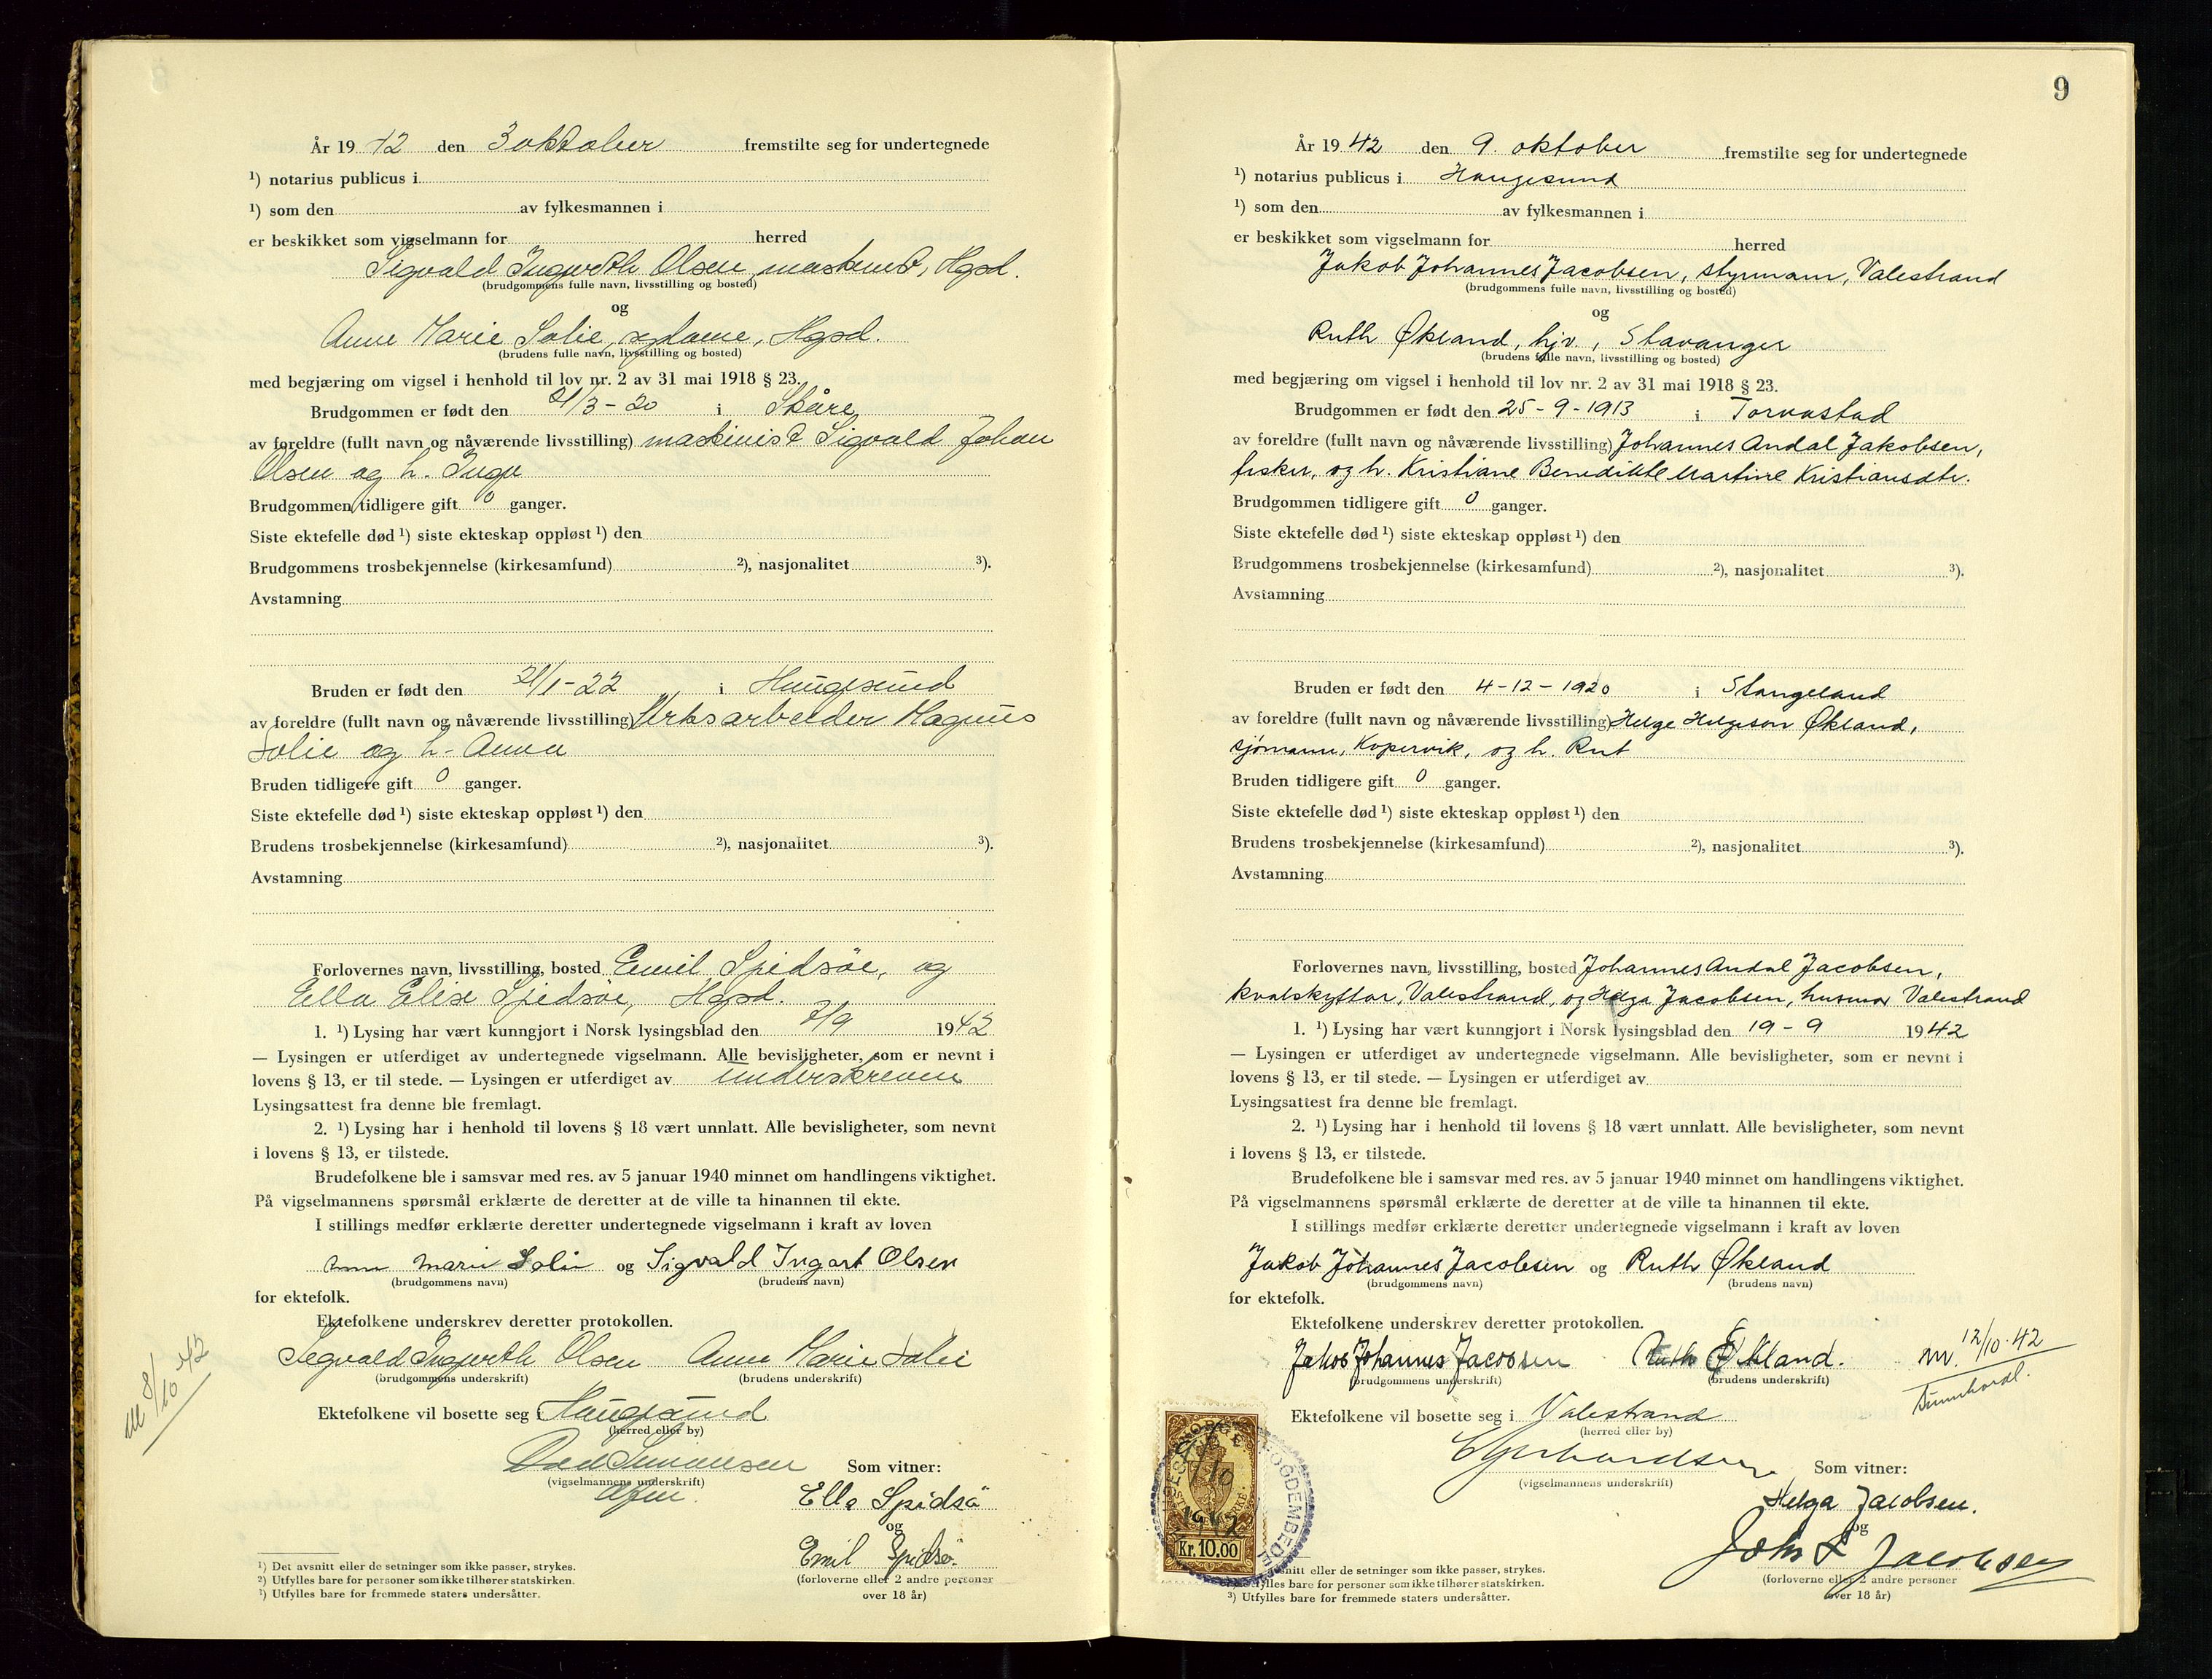 År 1942 den 3 oktober fremstilte seg for undertegnede
¹) notarius publicus i
¹) som den av fylkesmannen i
er beskikket som vigselmann for herred
Sigvald Ingvarth Olsen, maskinist, Hgsd.
(brudgommens fulle navn, livsstilling og bosted)
og
Anne Marie Solie, sydame, Hgsd.
(brudens fulle navn, livsstilling og bosted)
med begjæring om vigsel i henhold til lov nr. 2 av 31 mai 1918 § 23.
Brudgommen er født den 21/3-20 i Skåre
av foreldre (fullt navn og nåværende livsstilling) maskinist Sigvald Johan
Olsen og h. Inga
Brudgommen tidligere gift 0 ganger.
Siste ektefelle død ¹) siste ekteskap oppløst ¹) den
Brudgommens trosbekjennelse (kirkesamfund) ²), nasjonalitet ³).
Avstamning
Bruden er født den 21/1-22 i Haugesund
av foreldre (fullt navn og nåværende livsstilling) Verksarbeider Magnus
Solie og h. Anna
Bruden tidligere gift 0 ganger.
Siste ektefelle død ¹) siste ekteskap oppløst ¹) den
Brudens trosbekjennelse (kirkesamfund) ²), nasjonalitet ³).
Avstamning
Forlovernes navn, livsstilling, bosted Emil Spidsöe, og
Ella Elise Spidsöe, Hgsd.
1. ¹) Lysing har vært kunngjort i Norsk lysingsblad den 7/9 1942
— Lysingen er utferdiget av undertegnede vigselmann. Alle bevisligheter, som er nevnt i
lovens § 13, er til stede. — Lysingen er utferdiget av underskreven
Lysingsattest fra denne ble fremlagt.
2. ¹) Lysing har i henhold til lovens § 18 vært unnlatt. Alle bevisligheter, som nevnt
i lovens § 13, er tilstede.
Brudefolkene ble i samsvar med res. av 5 januar 1940 minnet om handlingens viktighet.
På vigselmannens spørsmål erklærte de deretter at de ville ta hinannen til ekte.
I stillings medfør erklærte deretter undertegnede vigselmann i kraft av loven
Anne Marie Solie og Sigvald Ingart Olsen
(brudgommens navn) (brudens navn)
for ektefolk.
Ektefolkene underskrev deretter protokollen.
Sigvald Ingvarth Olsen Anne Marie Solie
(brudgommens underskrift) (brudens underskrift)
m 8/10 42
Ektefolkene vil bosette seg i Haugesund
(herred eller by)
Simonsen Som vitner:
(vigselmannens underskrift)
Ella Spidsö
og
Emil Spidsö.
(forloverne eller 2 andre personer
over 18 år)
¹) Det avsnitt eller de setninger som ikke passer, strykes.
²) Utfylles bare for personer som ikke tilhører statskirken.
¹) Utfylles bare for fremmede staters undersåtter.
9
År 1942 den 9. oktober fremstilte seg for undertegnede
¹) notarius publicus i Haugesund
¹) som den av fylkesmannen i
er beskikket som vigselmann for herred
Jakob Johannes Jacobsen, styrmann, Valestrand
(brudgommens fulle navn, livsstilling og bosted)
og
Ruth Økland, hjv., Stavanger
(brudens fulle navn, livsstilling og bosted)
med begjæring om vigsel i henhold til lov nr. 2 av 31 mai 1918 § 23.
Brudgommen er født den 25-9-1913 i Torvastad
av foreldre (fullt navn og nåværende livsstilling) Johannes Andal Jakobsen,
fisker, og h. Kristiane Benedikte Martine Kristiansdtr.
Brudgommen tidligere gift 0 ganger.
Siste ektefelle død ¹) siste ekteskap oppløst ¹) den
Brudgommens trosbekjennelse (kirkesamfund) ²), nasjonalitet ³).
Avstamning
Bruden er født den 4-12-1920 i Stangeland
av foreldre (fullt navn og nåværende livsstilling) Helge Helgeson Økland,
sjømann, Kopervik, og h. Rut
Bruden tidligere gift 0 ganger.
Siste ektefelle død ¹) siste ekteskap oppløst ¹) den
Brudens trosbekjennelse (kirkesamfund) ²), nasjonalitet ³).
Avstamning
Forlovernes navn, livsstilling, bosted Johannes Andal Jacobsen,
kvalskyttar, Valestrand, og Helga Jacobsen, husmor Valestrand
1. ¹) Lysing har vært kunngjort i Norsk lysingsblad den 19-9 1942
— Lysingen er utferdiget av undertegnede vigselmann. Alle bevisligheter, som er nevnt i
lovens § 13, er til stede. — Lysingen er utferdiget av
Lysingsattest fra denne ble fremlagt.
2. ¹) Lysing har i henhold til lovens § 18 vært unnlatt. Alle bevisligheter, som nevnt
i lovens § 13, er tilstede.
Brudefolkene ble i samsvar med res. av 5 januar 1940 minnet om handlingens viktighet.
På vigselmannens spørsmål erklærte de deretter at de ville ta hinannen til ekte.
I stillings medfør erklærte deretter undertegnede vigselmann i kraft av loven
Jakob Johannes Jacobsen og Ruth Økland
(brudgommens navn) (brudens navn)
for ektefolk.
Ektefolkene underskrev deretter protokollen.
Jakob Johannes Jacobsen Ruth Økland.
(brudgommens underskrift) (brudens underskrift)
m. 12/10-42
Sunnhordl.
Ektefolkene vil bosette seg i Valestrand
(herred eller by)
Som vitner:
(vigselmannens underskrift)
Helga Jacobsen.
og
Joh A Jacobsen
(forloverne eller 2 andre personer
over 18 år)
NORGE
9/10
1942
Kr. 10,00
snitt eller de setninger som ikke passer, strykes.
fylles bare for personer som ikke tilhører statskirken.
³) Utfylles bare for fremmede staters undersåtter.